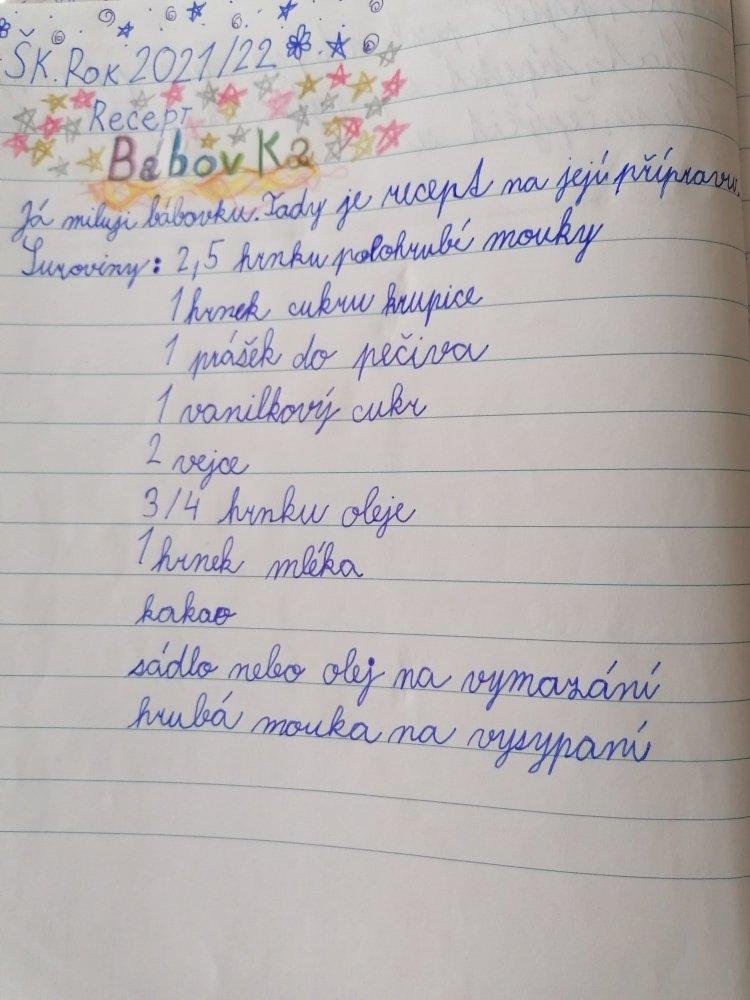 ŠK. Rok 2021/22
Recept
Bábovka
Já miluji bábovku. Tady je recept na její přípravu.
Suroviny: 2,5 hrnku polohrubé mouky
1 hrnek cukru krupice
1 prášek do pečiva
1 vanilkový cukr
2 vejce
3/4 hrnku oleje
1 hrnek mléka
kakao
sádlo nebo olej na vymazání
hrubá mouka na vysypaní